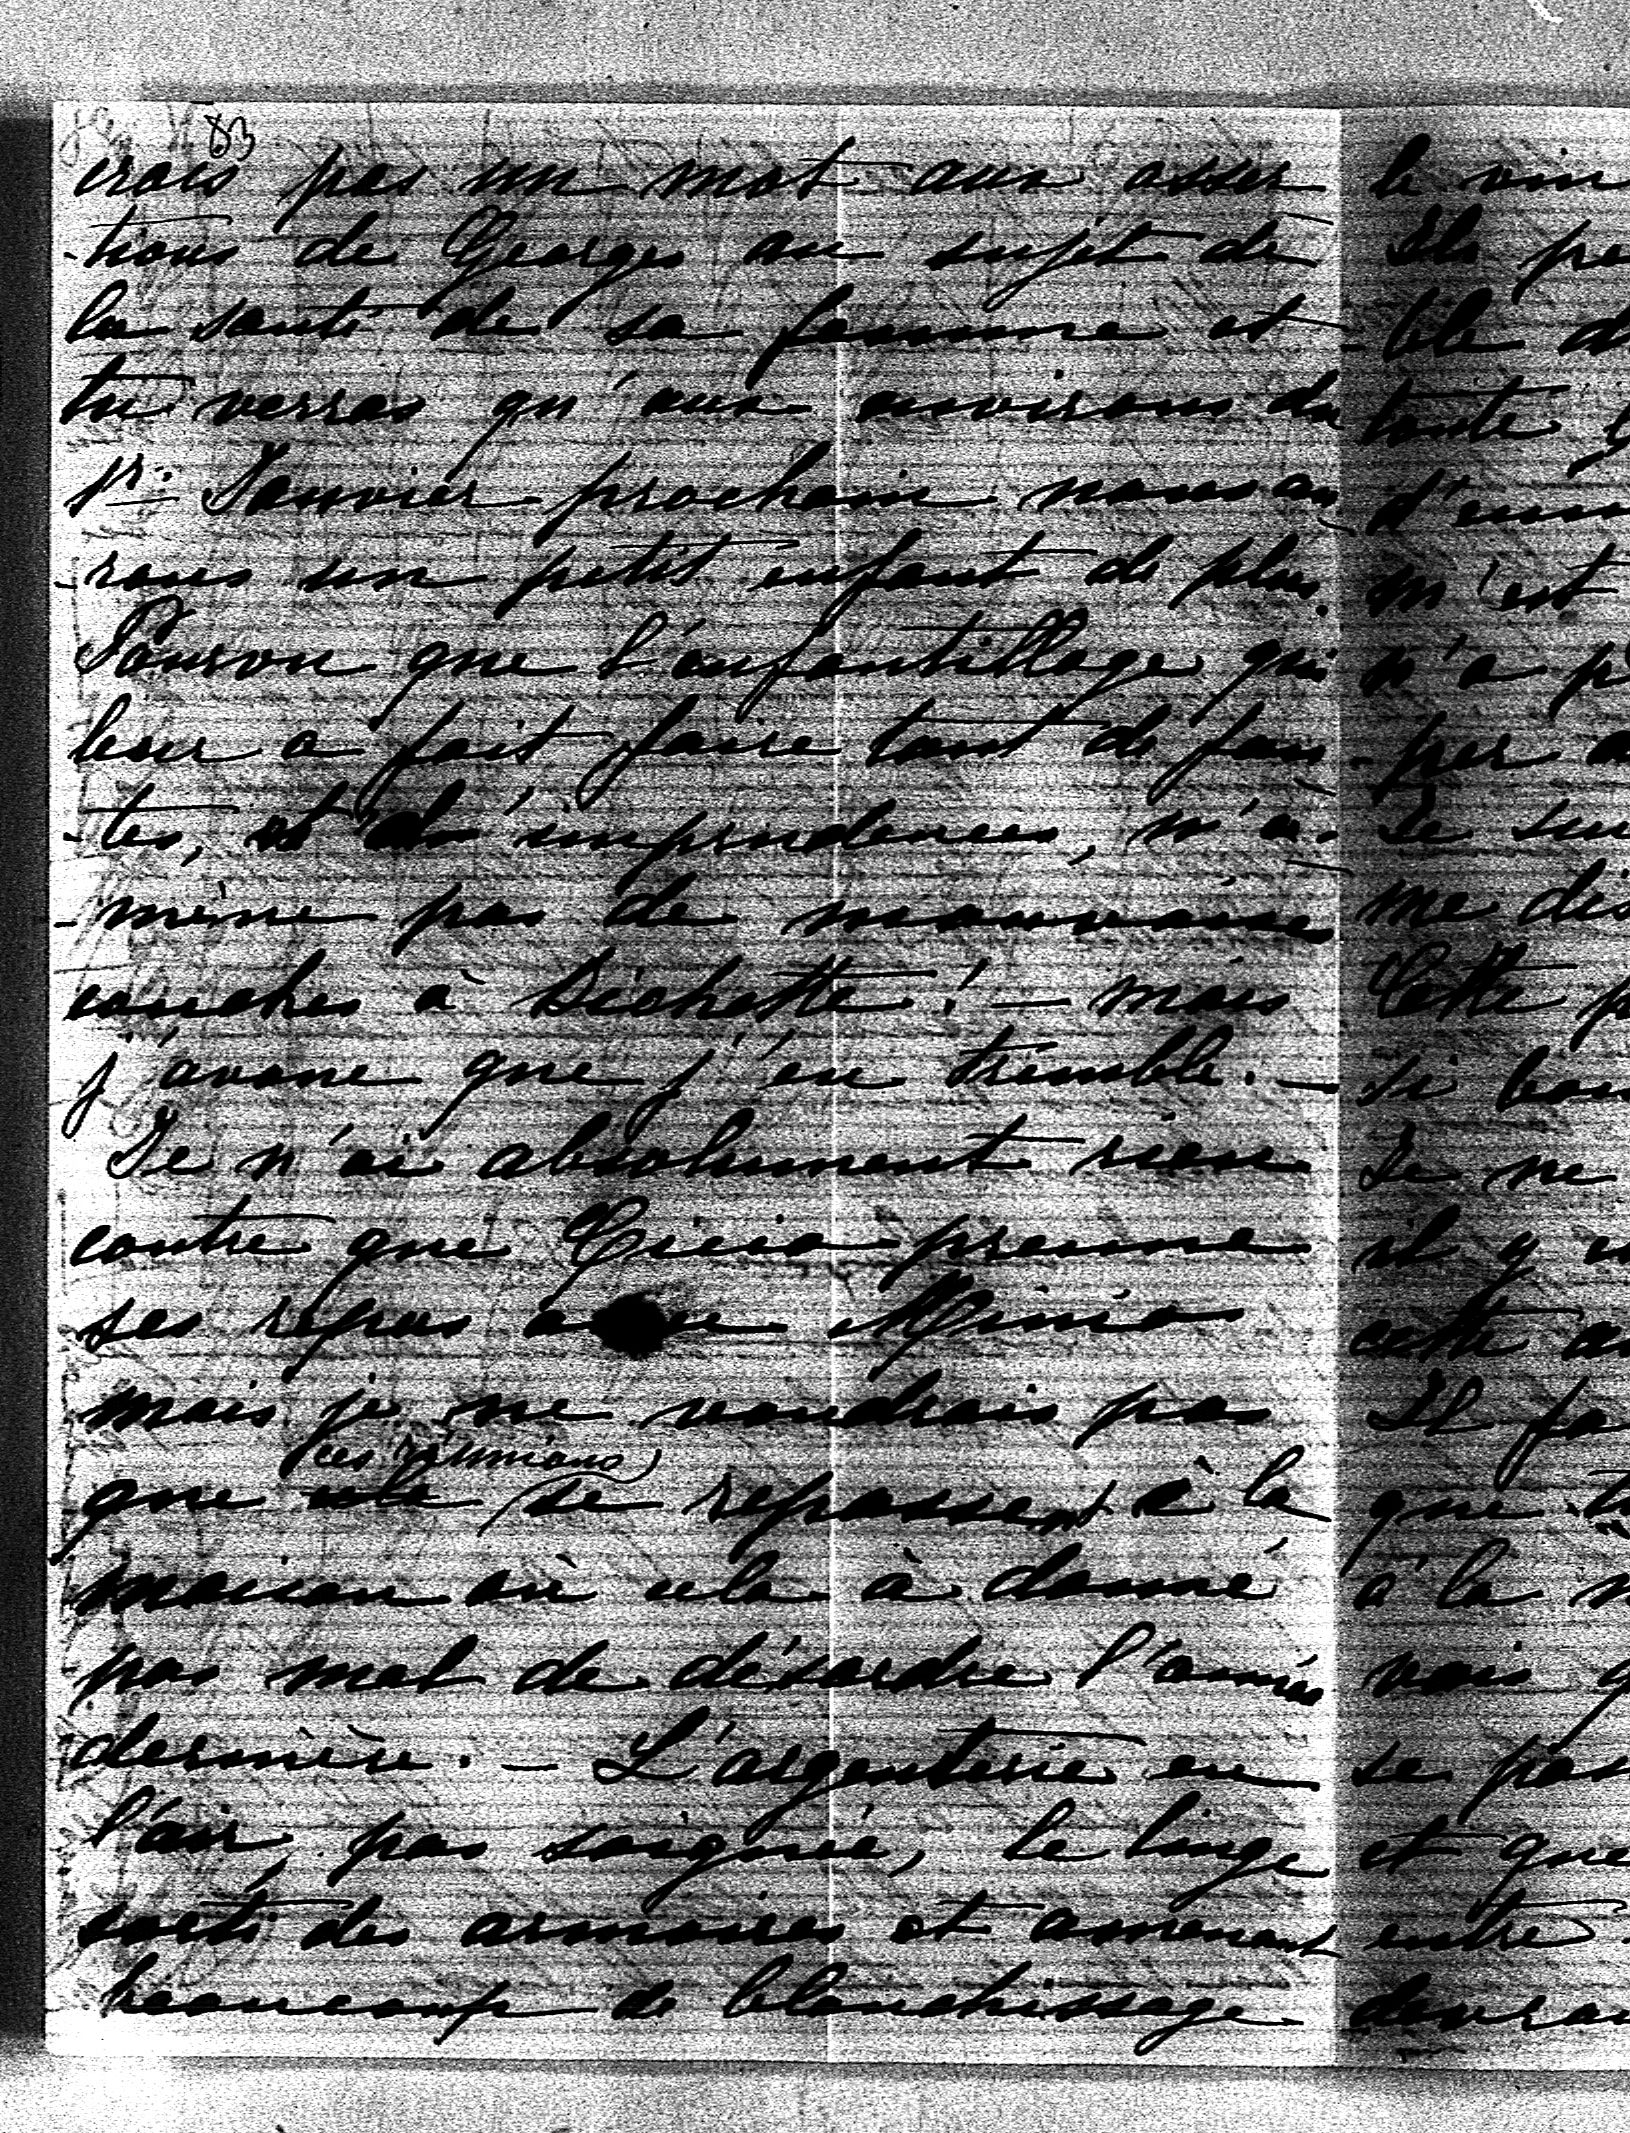 83
crois pas un mot aux asser-
-tions de Georges au sujet de
la santé de sa femme et
tu verras qu'aux environs du
pr. Janvier prochain nous au-
-rons un petit enfant de plus.
Pourvu que l'enfantillage qui
leur a fait faire tant de fau-
-tes, et d'imprudences, n'a-
-mène pas de mauvaises
couches à Béchette! — mais
j'avoue que j'en tremble. —
Je n'ai absolument rien
contre que prenne
ses repas avec Mimia
mais je ne voudrais pas
ces réunions
que cela se repassent à la
maison où cela à donné
pas mal de désordre l'année
dernière. — L'argenterie en
l'air, pas soignée, le linge
sorti des armoires et amenant
beaucoup de blanchissage
le
Ils
-ble
toute
m'est
n'a
-per
Je
me
Cette
si
Je ne
il y
cette
Il
que
à la
vais
se
et que
entre